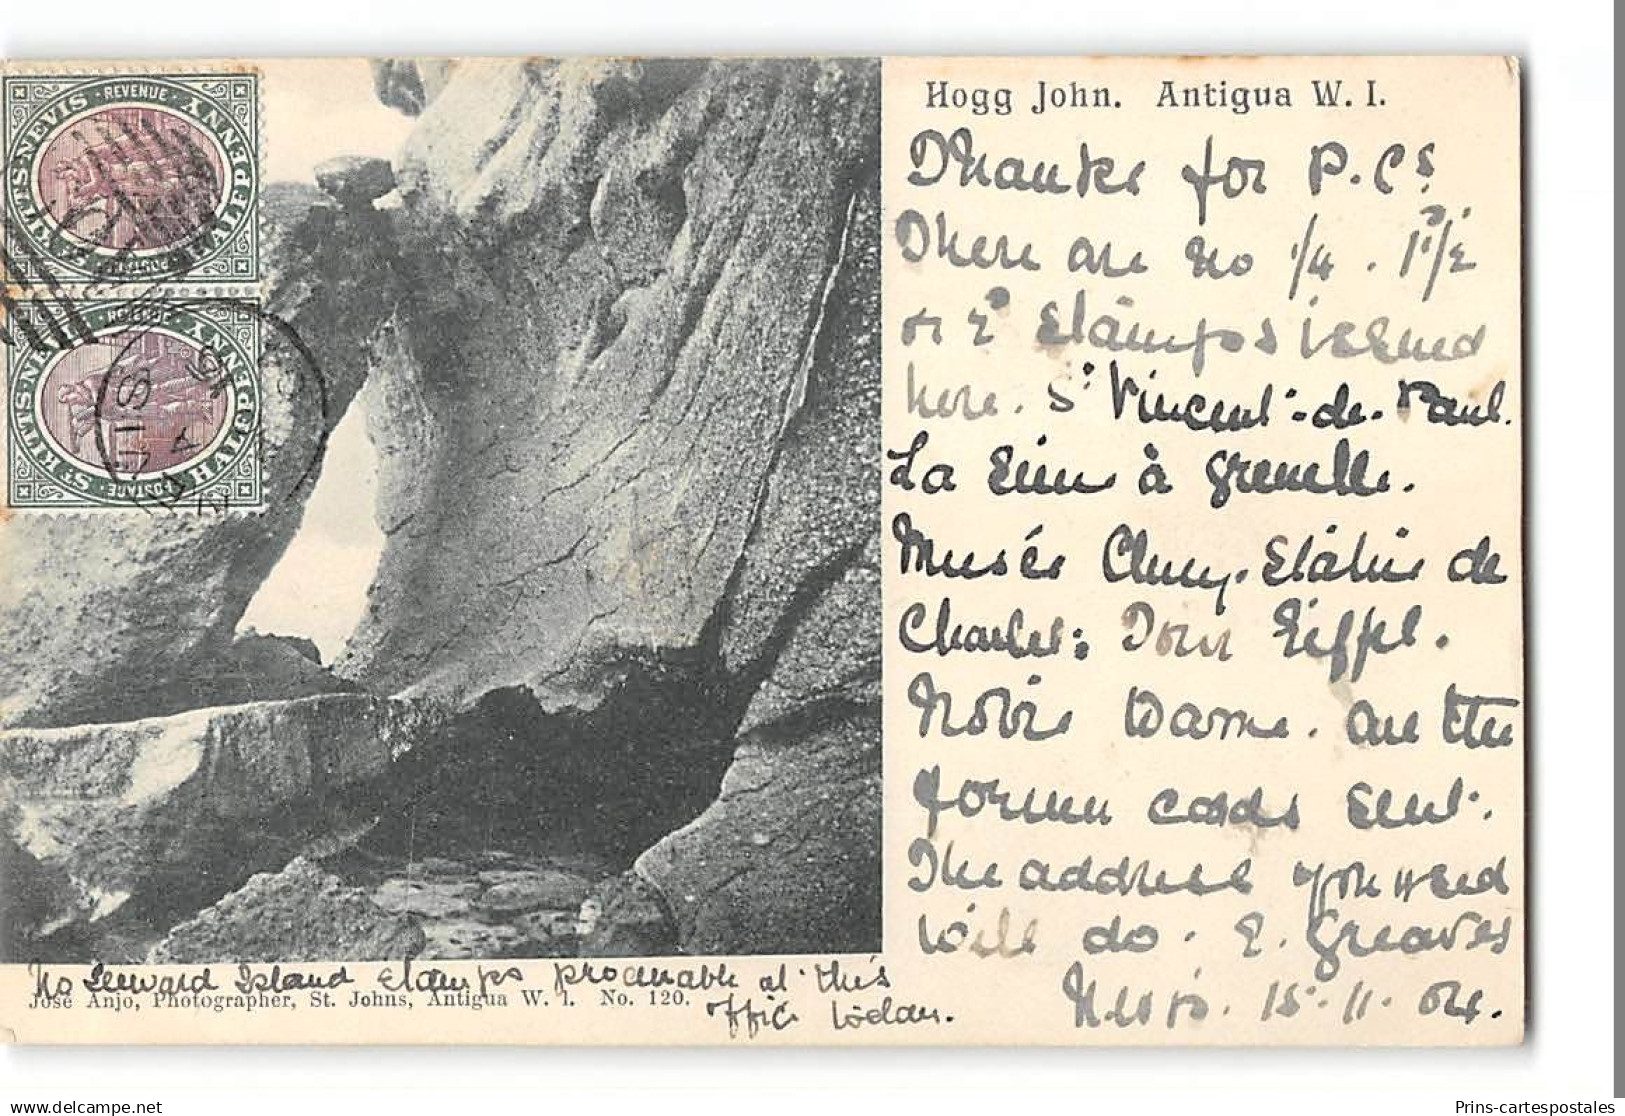 Hogg John. Antigua W. I.
Thanks for P.Cs.
There are no 1/4. 1½
or 2d stamps issued
here. St Vincent-de-Paul.
La Seine à Grenelle.
Musée Cluny. Statue de
Charles: Tour Eiffel.
Notre Dame. are the
former cards sent.
The address you used
will do. E. Greaves
Nevis. 15.11.04.
No Leeward Island stamps procurable at this
office today.
José Anjo, Photographer, St. Johns, Antigua W. I. No. 120.
ST KITTS-NEVIS
REVENUE
HALFPENNY
POSTAGE
ST KITTS-NEVIS
REVENUE
HALFPENNY
POSTAGE
www.delcampe.net
Prins-cartespostales